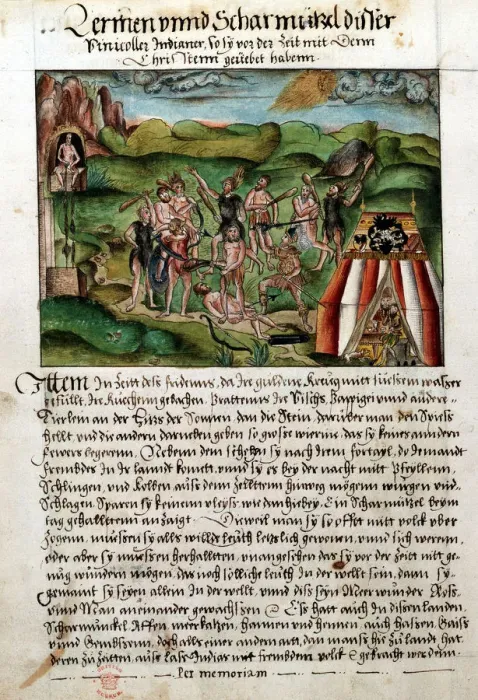 Lermen vnnd Scharmützl diser
Vinicoller Indianer, so sy vor der Zeit mit Denn
Christenn geüebet habenn.
Ittem In Zeitt deß fridenns, da Ire guldene Kreüg mitt süessem wasser
gefüllt, Ire Küechenn gebachen. Brattenns Ire Visch, vnnd andere
Tierlen an der Hitz der Sonnen, dan die Stein, darüber man den Spiess
hellt, vnd die andern darneben geben so grosse wierme, das sy keines andern
fewers Nebenn dem sehen sy nach Irem fortayl, do Jemandt
frembder In Ir lanndt komtt, vnnd sy es bey der nacht mit Pfeyllenn,
Schlingen, vnd Kolben auß dem Zelltenn hinweg mögenn würgen vnd
Schlagen, Sparen sy keinenn vleyß, wie dan hiebey Ein Scharmützel beym
tag gehalltenn an Zaigt. Dieweil man sy so offtt mitt volck vber
Zogenn, müessen sy alß willde leüth letzlich gewonen, vnnd sich
oder aber sy müessen herhalltten, vnangesehen das sy vor der Zeitt nitt ge-
nüg wundern mögen, das noch söllliche leüth In der wellt sein, dann sy
gemaint sy seyen allein In der wellt, vnnd diß seyen Meer wunder Roß
vnnd Man aneinander gewachssen. Es hatt auch In disen landen,
Affen, meerkatzen, hannen vnd hennen, auch hassen, Gaiß
vnnd doch alls einer andern artt, dan manß hie Zů landt hat
deren Zů Zeitten, auß Indias mit frembdem volck gebracht werdenn.
Per memoriam